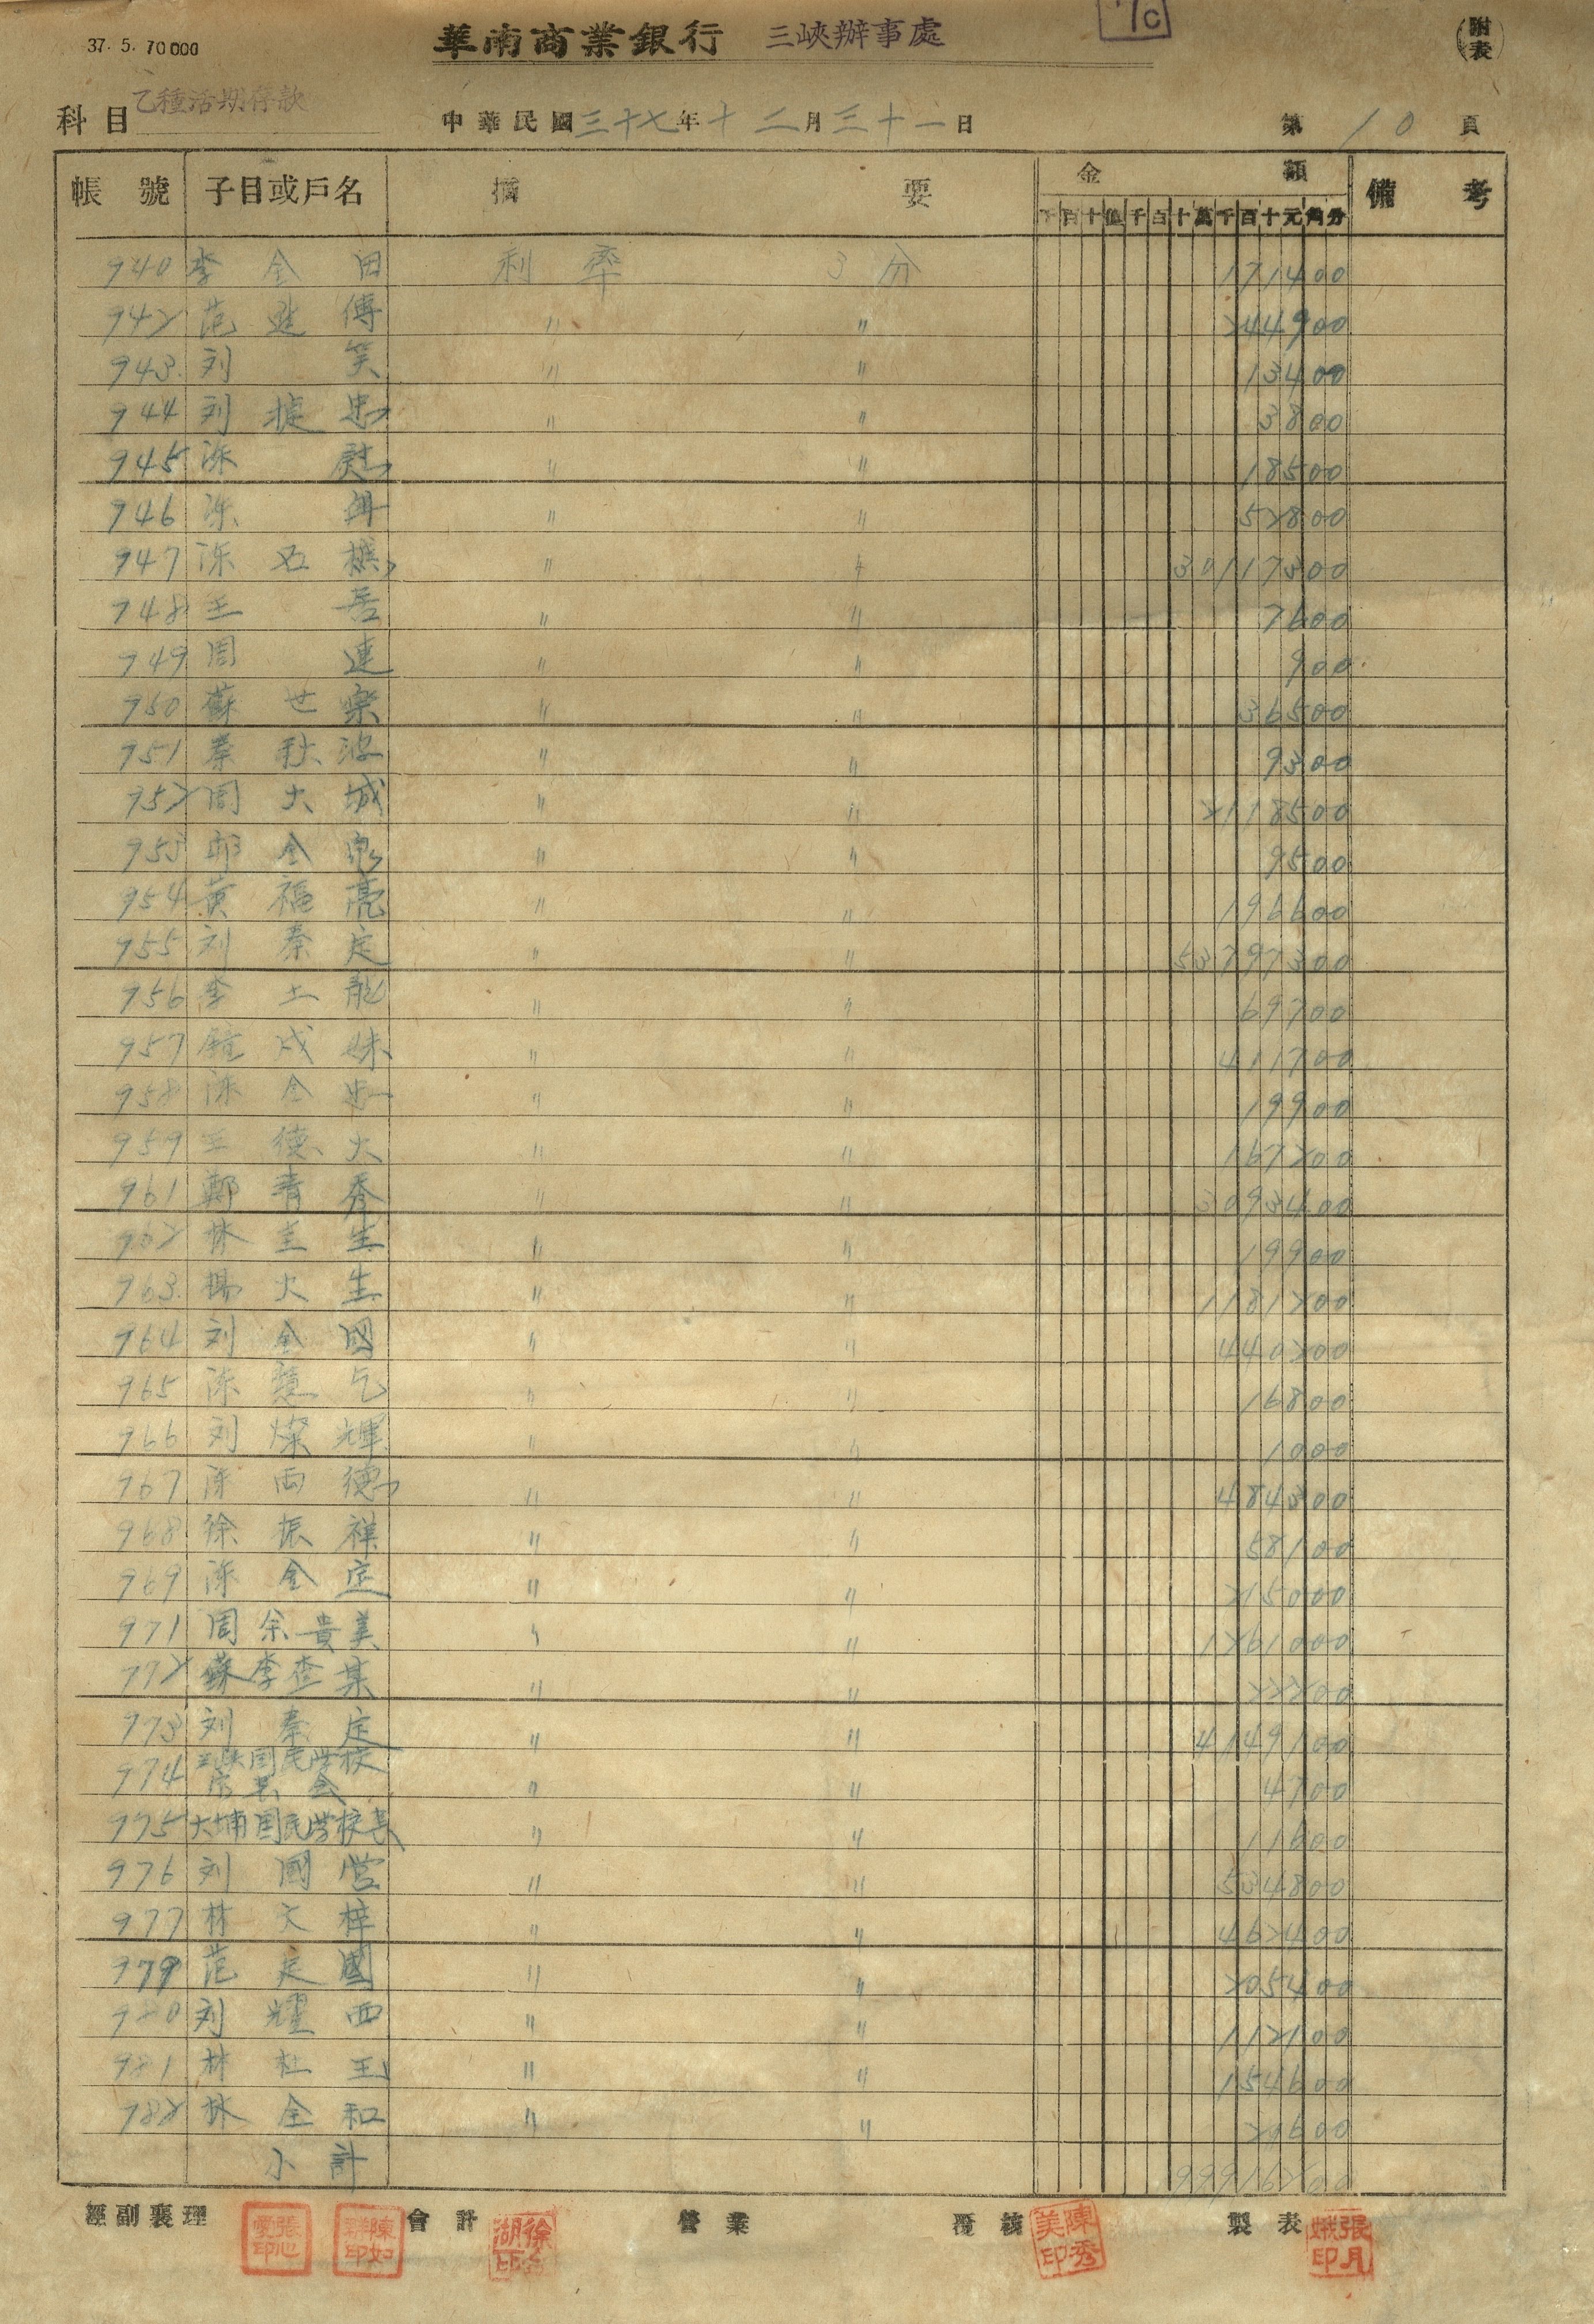 37. 5. 70000
華南商業銀行 三峽辦事處
(附表)
科目 乙種活期存款 中華民國三十七年十二月三十一日 第10頁
帳號 子目或戶名 摘要 金額 備考
千百十億千百十萬千百十元角分
940 李金田 利率 3分 171400
942 范 傳 〃 〃 244900
943 刘 笑 〃 〃 13400
944 刘 忠 〃 〃 3800
945 陈 慰 〃 〃 18500
946 陈 〃 〃 52800
947 陈 〃 〃 30117300
948 王 〃 〃 7600
949 周 連 〃 〃 900
950 蘇世樂 〃 〃 36500
951 秦秋波 〃 〃 9300
952 周大城 〃 〃 2118500
953 金泉 〃 〃 9500
954 黃福亮 〃 〃 196600
955 刘秦定 〃 〃
956 李土龍 〃 〃 69700
957 鐘 妹 〃 〃 411700
958 陈金 〃 〃 19900
959 王德火 〃 〃 167200
961 鄭青秀 〃 〃 3093400
962 林 生 〃 〃 19900
963 楊火生 〃 〃 1181200
964 刘金國 〃 〃 440200
965 陈 乞 〃 〃 16800
966 刘燦輝 〃 〃 1000
967 陈两德 〃 〃 484300
968 徐振祥 〃 〃 58100
969 陈金定 〃 〃 215000
971 周余貴美 〃 〃 1261000
972 蘇李查某 〃 〃 22200
973 刘秦定 〃 〃 4149100
974 三峡国民学校 会 〃 〃 4700
975 大埔国民学校長 〃 〃 11600
976 刘國營 〃 〃 534800
977 林文梓 〃 〃 462400
979 范定國 〃 〃 205400
980 刘耀西 〃 〃 112100
981 林杜玉 〃 〃 154600
982 林全和 〃 〃 20600
小計 99916200
經副襄理 會計 營業 覆核 製表
陳秀美印
張月娥印